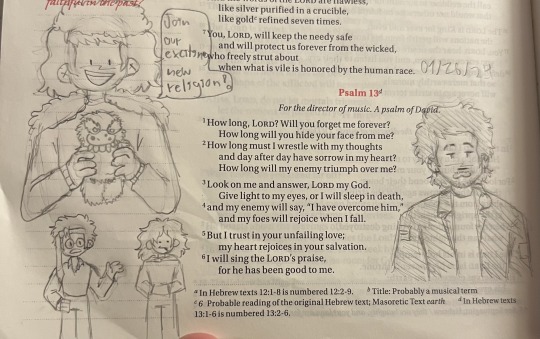 faithful in the past
Join
our
new
religion!
like silver purified in a crucible,
like gold<sup>c</sup> refined seven times.
7 You, LORD, will keep the needy safe
and will protect us forever from the wicked,
8 who freely strut about
when what is vile is honored by the human race.
Psalm 13<sup>d</sup>
For the director of music. A psalm of David.
1 How long, LORD? Will you forget me forever?
How long will you hide your face from me?
2 How long must I wrestle with my thoughts
and day after day have sorrow in my heart?
How long will my enemy triumph over me?
3 Look on me and answer, LORD my God.
Give light to my eyes, or I will sleep in death,
4 and my enemy will say, “I have overcome him,”
and my foes will rejoice when I fall.
5 But I trust in your unfailing love;
my heart rejoices in your salvation.
6 I will sing the LORD’s praise,
for he has been good to me.
a In Hebrew texts 12:1-8 is numbered 12:2-9. b Title: Probably a musical term
c 6 Probable reading of the original Hebrew text; Masoretic Text earth d In Hebrew texts
13:1-6 is numbered 13:2-6.